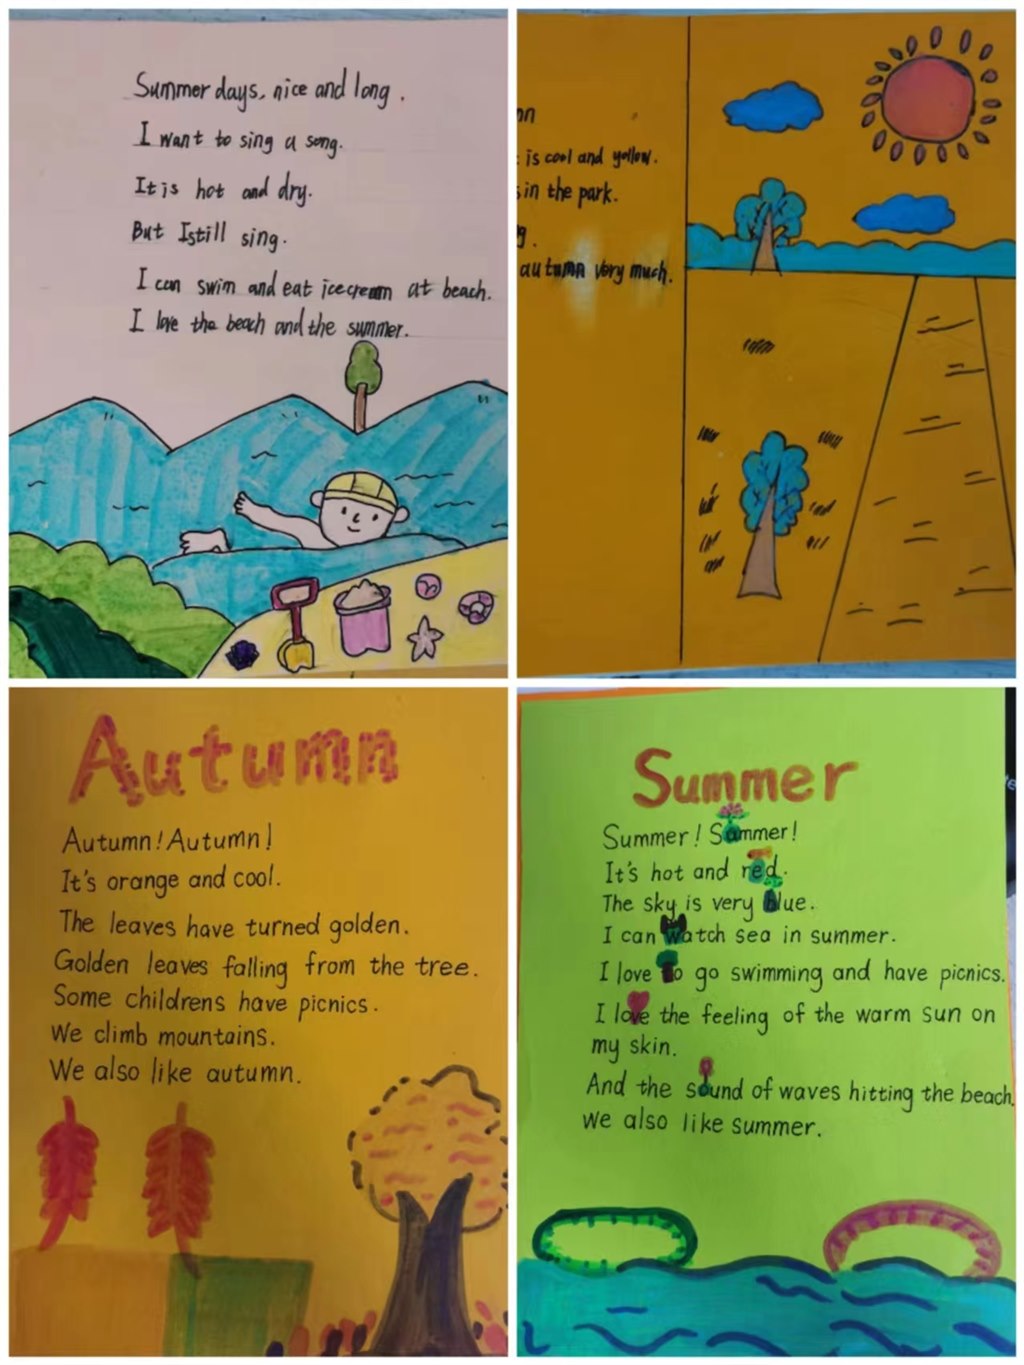 Summer days, nice and long.
I want to sing a song.
It is hot and dry.
But I still sing.
I can swim and eat icecream at beach.
I love the beach and the summer.
is cool and yellow.
in the park.
autumn very much.
Autumn
Autumn! Autumn!
It's orange and cool.
The leaves have turned golden.
Golden leaves falling from the tree.
Some childrens have picnics.
We climb mountains.
We also like autumn.
Summer
Summer! Summer!
It's hot and red.
The sky is very blue.
I can watch sea in summer.
I love to go swimming and have picnics.
I love the feeling of the warm sun on
my skin.
And the sound of waves hitting the beach.
We also like summer.